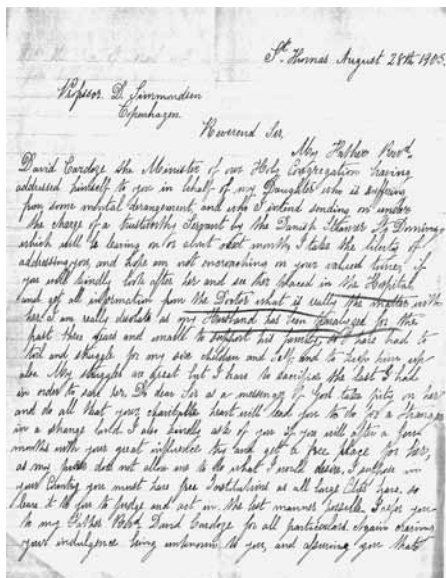 St. Thomas August 28th 1905.
Professor D. Simmondsen
Copenhagen.
Reverend Sir,
My Father Revd.
David Cardoze the Minister of our Holy Congregation having
addressed himself to you in behalf of my Daughter who is suffering
from some mental derangement, and who I intend sending on under
the charge of a trustworthy Servant by the Danish Steamer St. Domingo
which will be leaving on or about next month I take the liberty of
addressing you, and hope am not encroaching on your valued time, if
you will kindly look after her and see her placed in the Hospital
and get all information from the Doctor what is really the matter with
her. I am really desolate as my Husband has been paralyzed for the
past three years and unable to support his family, so I have had to
toil and struggle for my six children and self, and to keep him up
also. My struggles are great but I have to sacrifice the last I had
in order to send her. Do dear Sir as a messenger of God take pity on her
and do all that your charitable heart will lead you to do for a Stranger
in a strange land. I also kindly ask of you if you will after a few
months with your great influence try and get a free place for her,
as my purse does not allow me to do what I would desire. I suppose in
your Country you must have free Institutions as all large Cities have, so
leave it to you to judge and act in the best manner possible. I refer you
to my Father Revd. David Cardoze for all particulars. Again craving
your indulgence being unknown to you, and assuring you that